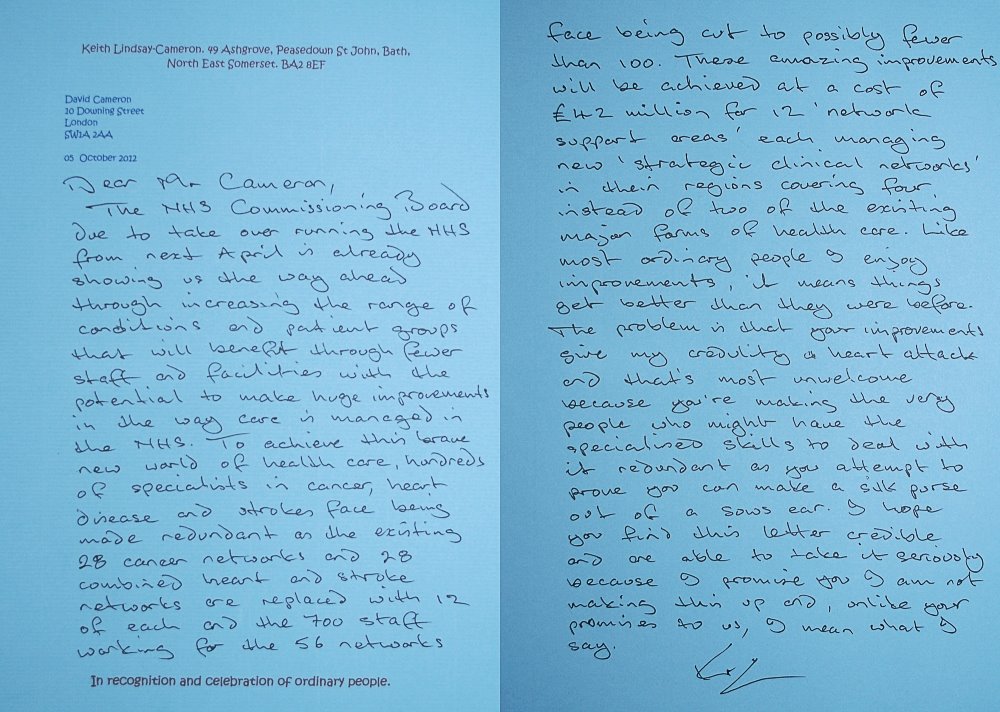 Keith Lindsay-Cameron. 49 Ashgrove, Peasedown St John, Bath,
North East Somerset. BA2 8EF
David Cameron
10 Downing Street
London
SW1A 2AA
05 October 2012
Dear Mr Cameron,
The NHS Commissioning Board
due to take over running the NHS
from next April is already
showing us the way ahead
through increasing the range of
conditions and patient groups
that will benefit through fewer
staff and facilities with the
potential to make huge improvements
in the way care is managed in
the NHS. To achieve this brave
new world of health care, hundreds
of specialists in cancer, heart
disease and strokes face being
made redundant as the existing
28 cancer networks and 28
combined heart and stroke
networks are replaced with 12
of each and the 700 staff
working for the 56 networks
In recognition and celebration of ordinary people.
face being cut to possibly fewer
than 100. These amazing improvements
will be achieved at a cost of
£42 million for 12 'network
support areas' each managing
new 'strategic clinical networks'
in their regions covering four
instead of two of the existing
major forms of health care. Like
most ordinary people I enjoy
improvements, it means things
get better than they were before.
The problem is that your improvements
give my credulity a heart attack
and that's most unwelcome
because you're making the very
people who might have the
specialised skills to deal with
it redundant as you attempt to
prove you can make a silk purse
out of a sows ear. I hope
you find this letter credible
and are able to take it seriously
because I promise you I am not
making this up and, unlike your
promises to us, I mean what I
say.